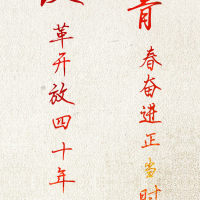 青春奋进正当时
革开放四十年